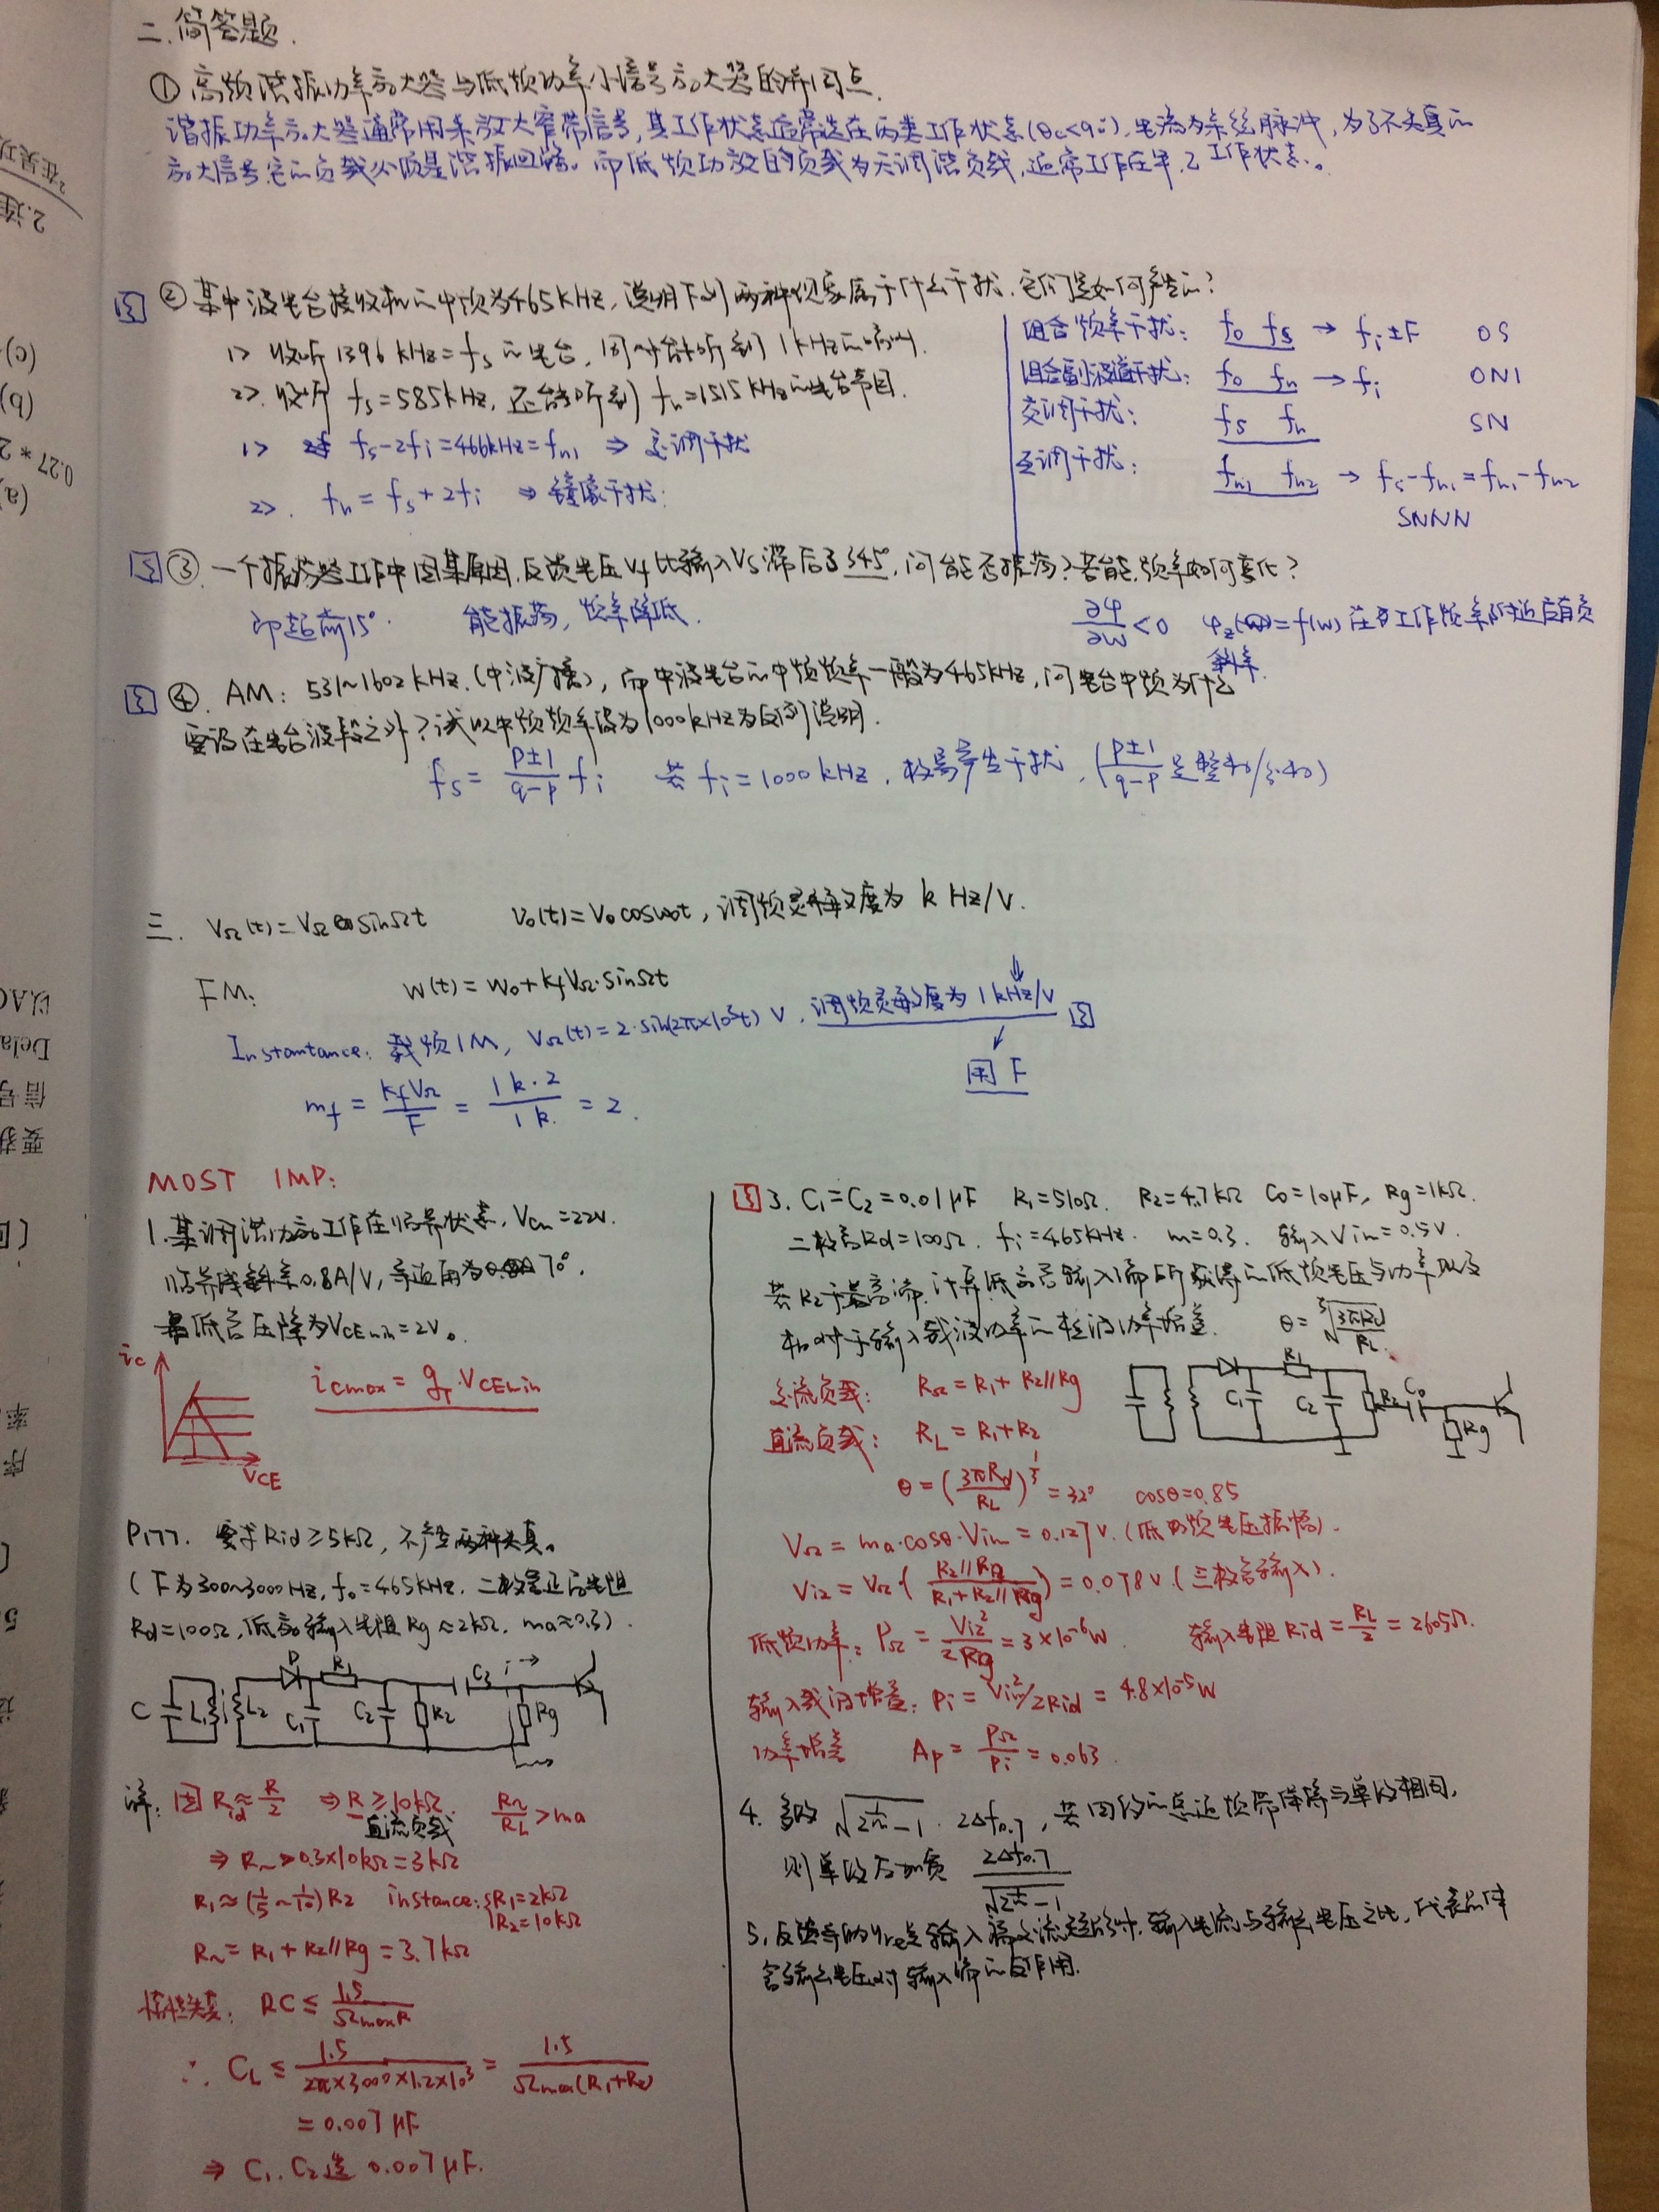 二.简答题.
① 高频谐振功率放大器与低频功率小信号放大器的异同点.
谐振功率放大器通常用来放大窄带信号,其工作状态通常选在丙类工作状态(θc<90°),电流为余弦脉冲,为了不失真的
放大信号它的负载必须是谐振回路。而低频功放的负载为无调谐负载,通常工作在甲,乙工作状态。
② 某中波电台接收机的中频为465KHz,说明下列两种现象属于什么干扰.它们是如何产生的?
1> 收听1396 KHz=fs的电台,同时能听到1KHz的啸叫.
2>. 收听 fs=585kHz,还能听到 fn=1515KHz的电台节目.
1> fs-2fi=466kHz=fn1 ⇒ 交调干扰
2>. fn = fs+2fi ⇒ 镜像干扰.
组合频率干扰: fo fs → fi±F OS
组合副波道干扰: fo fn → fi ONI
交调干扰: fs fn SN
互调干扰: fn1 fn2 → fs-fn1=fn1-fn2
SNNN
③. 一个振荡器工作中因某原因,反馈电压Vf比输入Vs滞后了345°,问能否振荡?若能,频率如何变化?
即超前15°. 能振荡,频率降低.
∂φ/∂w<0 φz(w)=f(w)在工作频率附近应有负
斜率.
④. AM: 531~1602 kHz.(中波广播),而中波电台的中频频率一般为465kHz,问电台中频为什么
要设在电台波段之外?试以中频频率设为1000kHz为反例说明.
fs = (p±1)/(q-p) fi 若 fi=1000kHz,极易产生干扰,((p±1)/(q-p)是整数/分数)
三. VΩ(t)=VΩ sinΩt Vo(t)=Vo coswot,调频灵敏度为 k Hz/V.
FM: w(t)=wo+kfVΩ·sinΩt
Instantance: 载频1M, VΩ(t)=2·sin(2π×10³t) V,调频灵敏度为1kHz/V
用 F
mf = kfVΩ/F = 1k·2/1k = 2.
MOST IMP:
1.某调谐功放工作在临界状态,Vcm=22V.
临界线斜率0.8A/V,导通角为70°.
最低管压降为VCEmin=2V。
ic
icmax = gr·VCEmin
VCE
P177. 要求Rid≥5kΩ,不产生两种失真。
(F为300~3000Hz, fo=465KHz.二极管正向电阻
Rd=100Ω,低放输入电阻Rg≈2kΩ. ma≈0.3).
D R1 C3 i→
C L1 L2 C1 C2 R2 Rg
解: 因 Rid≈R/2 ⇒ R≥10kΩ RΩ/RL>ma
直流负载
⇒ R~>0.3×10kΩ=3kΩ
R1≈(1/5~1/10)R2 instance: {R1=2kΩ
R2=10kΩ
R~ = R1+R2//Rg = 3.7kΩ
惰性失真: RC ≤ 1.5/ΩmaxR
∴ CL ≤ 1.5/(2π×3000×1.2×10³) = 1.5/(Ωmax(R1+R2))
= 0.007 μF
⇒ C1. C2选 0.007μF.
3. C1=C2=0.01μF R1=510Ω. R2=4.7kΩ C0=10μF, Rg=1kΩ.
二极管Rd=100Ω. fi=465KHz. m=0.3. 输入Vim=0.5V.
若R2于最高端,计算低放管输入端所获得的低频电压与功率以及
相对于输入载波功率的检波功率增益. θ=∛(3πRd/RL).
R1 C1 C2 R2 C0 Rg
交流负载: RΩ=R1+R2//Rg
直流负载: RL=R1+R2
θ = (3πRd/RL)^(1/3) = 32° cosθ=0.85
VΩ = ma·cosθ·Vim = 0.127V.(低频电压振幅).
Vi2 = VΩ(R2//Rg/(R1+R2//Rg)) = 0.078V.(三极管输入).
低频功率: PΩ = Vi2²/2Rg = 3×10⁻⁶W. 输入电阻Rid=RL/2=2605Ω.
输入载波增益: Pi = Vim²/2Rid = 4.8×10⁻⁵W
功率增益 Ap = PΩ/Pi = 0.063.
4. 多级 √(2^(1/n)-1) · 2Δf0.7,若因级的总通频带宽度与单级相同,
则单级应加宽 2Δf0.7/√(2^(1/n)-1)
5.反馈导纳yre是输入端交流短路时,输入电流与输出电压之比,代表晶体
管输出电压对输入端的反作用.